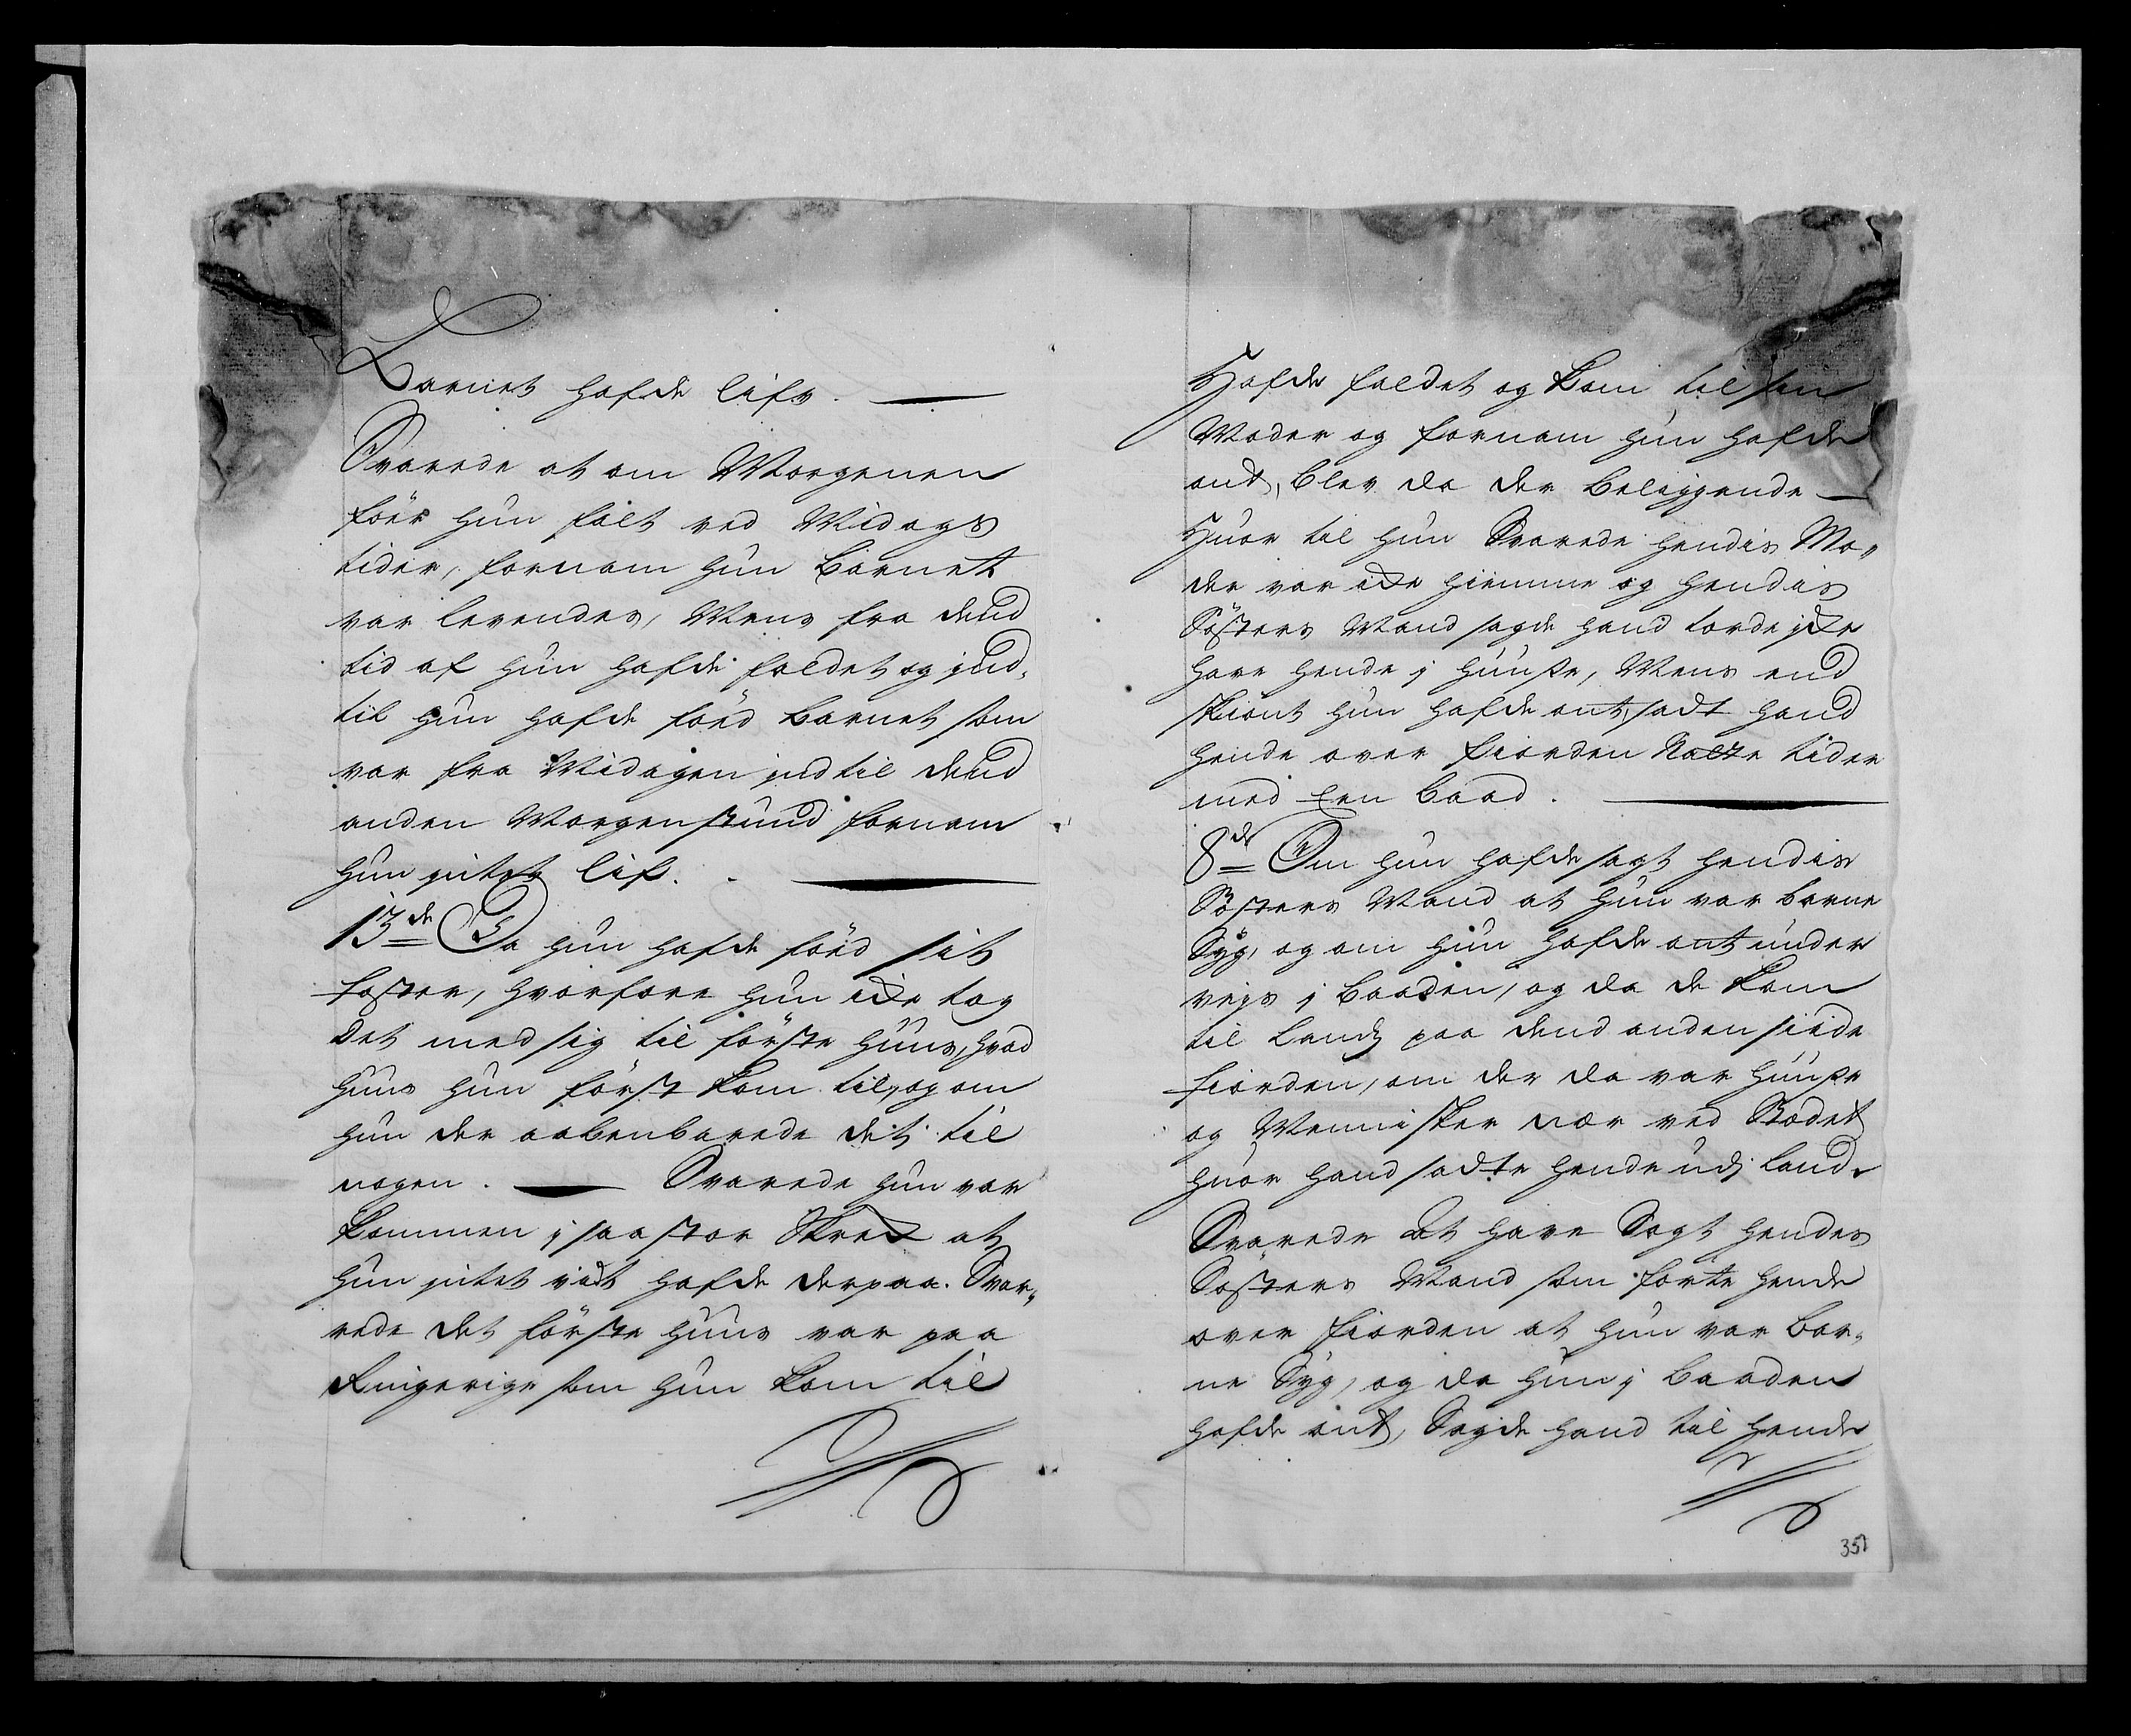 Barnet hafde lifv.
Svarede at om Morgenen
förr hun fält ved Midags
tider, fornam hun Barnet
var levendes, Mens fra dend
tid af hun hafde faldet og ind„
til hun hafde föed Barnet som
var fra Midagen indtil dend
anden Morgenstund fornam
hun intet lif.
13de Da hun hafde föed sit
foster, hvorfore hun icke tog
det med sig til förste Huus, hvad
Huus hun först kom til, og om
hun der aabenbarede det til
nogen. Svarede hun var
kommen i saa stor Skreck at
hun intet vidt hafde derpaa. Sva„
rede det förste Huus var paa
Ringerige som hun kom til
Hafde faldet og kom til sin
Moder og fornam hun hafde
ondt, blev da der beliggende
Huor til hun Svarede hendis Mo„
der var icke hiemme og hendis
Sösters Mand sagde hand torde icke
have hende i Huuse, Mens end
skiönt hun hafde ont, sadt hand
hende over fiorden Natte tider
med Een baad.
8de Om hun hafde sagt hendis
Sösters Mand at hun var barne
Syg, og om hun hafde ont under
vejs i Baaden, og da de kom
til Land paa dend anden siide
fiorden, om der da var Huuse
og Mennisker nær ved Stædet
huor hand sadte hende udj land.
Svarede At have Sagt hendes
Sösters Mand som förte hende
over fiorden at hun var bar„
ne Syg, og da hun i Baaden
hafde ondt, Sagde hand til hende
351